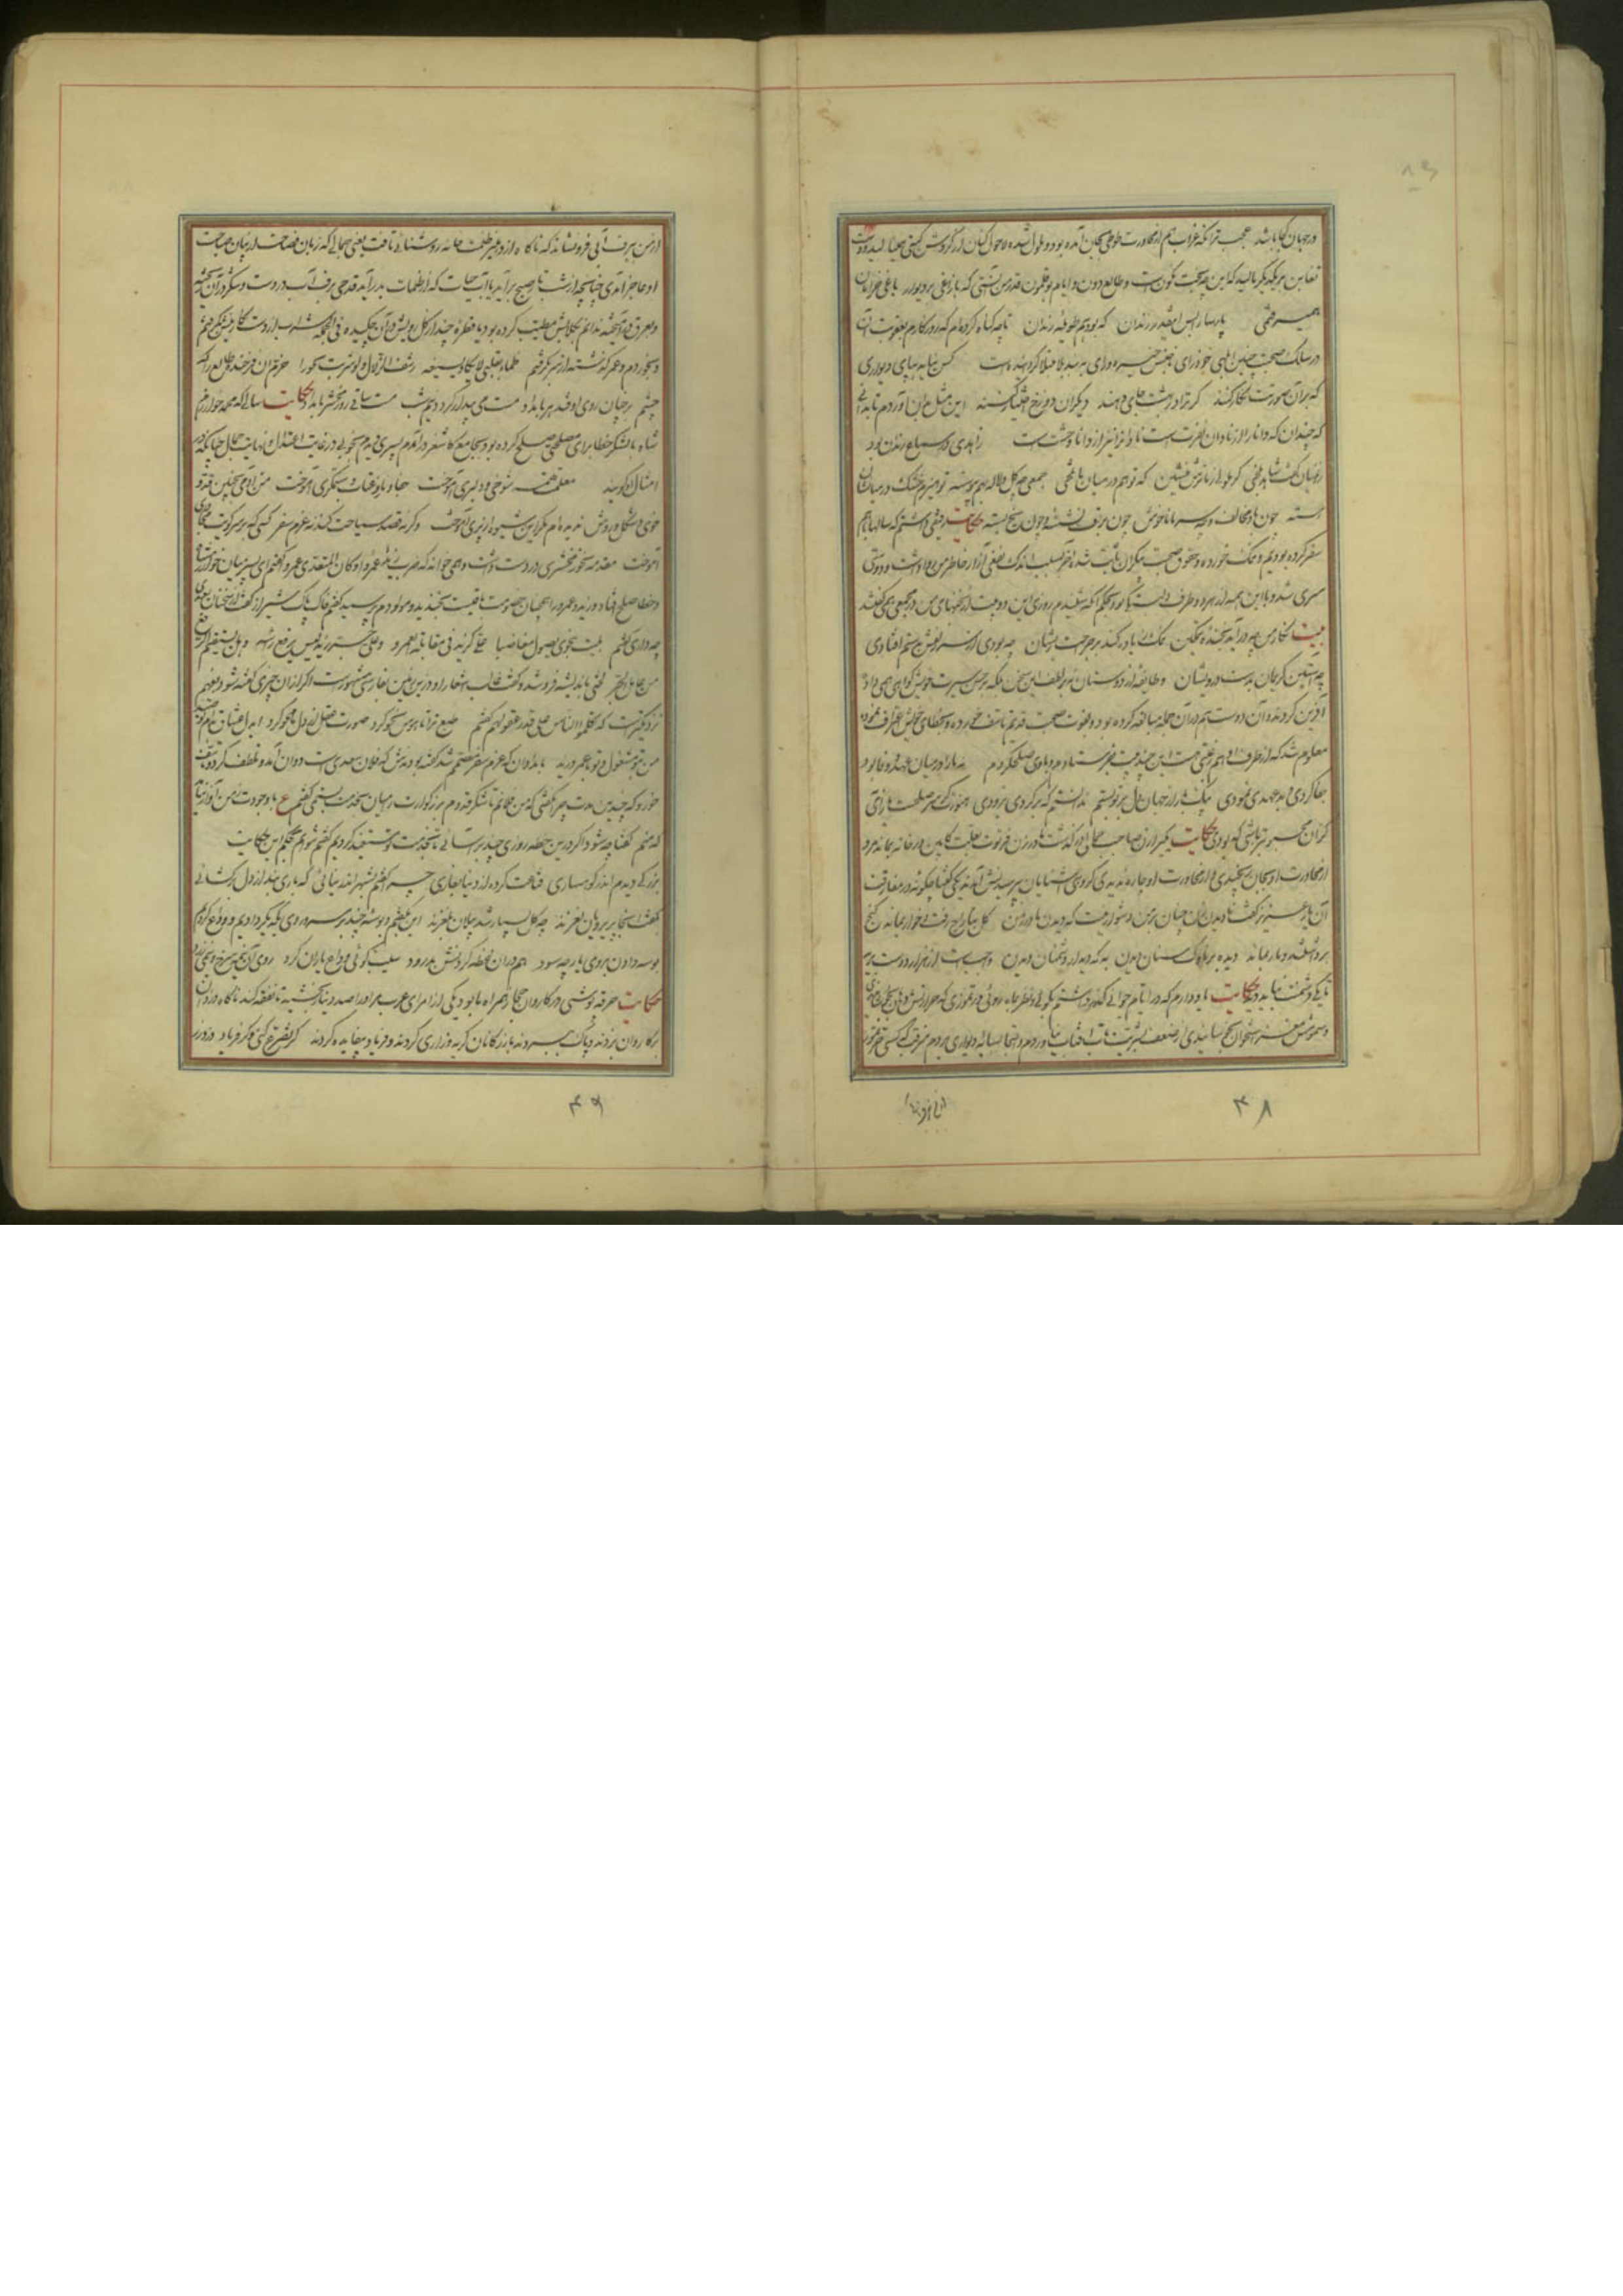 در جهان کجا باشد عجب تر آنکه غراب هم از مجاورت طوطی بجان آمده بود و ملول شده لاحول کنان از گردش گیتی همی نالید و دست
تغابن بر یکدیگر مالید که این چه بخت نگون است و طالع دون و ایام بوقلمون قدر من آنستی که با زاغی بر دیوار باغی خرامان
همی رفتمی پارسا را بس اینقدر زندان که بود هم طویله رندان تا چه گناه کرده ام که روزگارم بعقوبت آن
در سلک صحبت چنین ابلهی خودرای ناجنس خیره درای بچنین بند بلا مبتلا گردانیده است کس نیاید بپای دیواری
که بر آن صورتت نگار کنند گر ترا در بهشت جای دهند دیگران دوزخ اختیار کنند این مثل بدان آوردم تا بدانی
که چندان که دانا را از نادان نفرت است نادان را نیز از دانا وحشت است زاهدی در سماع رندان بود
زان میان گفت شاهد بلخی گر ملولی ز ما ترش منشین که تو هم در میان ما تلخی جمعی چو گل و لاله بهم پیوسته تو هیزم خشک در میان شان
رسته چون باد مخالف و چو سرما ناخوش چون برف نشسته و چون یخ بسته حکایت رفیقی داشتم که سالها با هم
سفر کرده بودیم و نمک خورده و حقوق صحبت بیکران ثابت شده آخر بسبب اندک نفعی آزار خاطر من روا داشت و دوستی
سپری شد و با این همه از هر دو طرف دلبستگی بود بحکم آنکه شنیدم روزی این دو بیت از سخنهای من در مجمعی همی گفتند
بیت نگار من چو در آید بخنده نمکین نمک زیاده کند بر جراحت ریشان چه بودی ار سر زلفش بدستم افتادی
چو آستین کریمان بدست درویشان و طایفه از دوستان نه بر لطف این سخن بلکه بر حسن سیرت خویش گواهی همی دادند
آفرین کردند و آن دوست هم در آن جمله مبالغه کرده بود و بفوت صحبت قدیم تاسف خورده و بخطای خویش اعتراف نموده
معلوم شد که از طرف او هم رغبتی هست این چند بیت بفرستادم و با وی صلح کردم نه ما را در میان عهد و وفا بود
جفا کردی و بد عهدی نمودی بیکبار از جهان دل بر تو بستم ندانستم که بر گردی بزودی هنوزت گر سر صلحست باز آی
کزان محبوبتر باشی که بودی حکایت یکی را زنی صاحب جمال در گذشت و مادر زن فرتوت بعلت کابین در خانه بماند مرد
از محاورت او بجان رنجیدی و از مجاورت او چاره ندیدی گروهی آشنایان بپرسیدنش آمدند یکی گفتا چگونه در مفارقت
آن یار عزیز گفت نادیدن زن چنان بر من دشوار نیست که دیدن مادر زن گل بتاراج رفت و خار بماند گنج
برداشتند و مار بماند دیده بر تارک سنان دیدن به که دیدار دشمنان دیدن واجب است از هزار دوست برید
تا یکی دشمنت نباید دید حکایت یاد دارم که در ایام جوانی گذر داشتم بکوئی و نظر با ماه روئی در تموزی که حرورش دهان بخوشانیدی
و سمومش مغز استخوان بجوشانیدی از ضعف بشریت تاب آفتاب نیاوردم و التجا بسایه دیواری بردم مترقب که کسی حر تموز
۴۸
از من ببرف آبی فرو نشاند که ناگاه از در دهلیز ظلمت خانه روشنائی تافت یعنی جمالی که زبان فصاحت از بیان صباحت
او عاجز آمدی چنانچه از شب تار صبح برآید یا آب حیات که از ظلمات بدر آید قدحی برف آب در دست و شکر در آن ریخته
و بعرق بر آمیخته ندانم بگلابش مطیب کرده بود یا قطره چند از گل رویش در آن چکیده فی الجمله شراب از دست نگارینش بر گرفتم
و بخوردم و عمر گذشته از سر گرفتم ظماء بقلبی لا یکاد یسیغه رشف الزلال و لو شربت بحورا خرم آن فرخنده طالع را که
چشم بر چنان روی اوفتد هر بامداد مست می بیدار گردد نیم شب مست ساقی روز محشر بامداد حکایت سالی که محمد خوارزم
شاه با لشکر خطا برای مصلحتی صلح کرده بود بجامع کاشغر در آمدم پسری دیدم بخوبی در غایت اعتدال و نهایت جمال چنانکه در
امثال او گویند معلمت همه شوخی و دلبری آموخت جفا و ناز و عتاب و ستمگری آموخت من آدمی بچنین قد و
خوی و شکل و روش ندیده ام مگر این شیوه از پری آموخت
آموخت مقدمه نحو زمخشری در دست داشت و همی خواند که ضرب زید عمروا و کان المتعدی عمروا گفتم ای پسر میان خوارزم
و خطا صلح افتاد و زید و عمرو را همچنان خصومت باقیست بخندید و مولدم پرسید گفتم خاک پاک شیراز گفت از سخنان سعدی
چه داری گفتم بلیت بنحوی یصول مغاضبا علی کزید فی مقابلة العمرو و علی جر ذیل لیس یرفع راسه و هل یستقیم الرفع
من عامل الجر لختی باندیشه فرو شد و گفت غالب اشعار او در این زمین بفارسی مشهورست اگر از ان چیزی گفته شود بفهم
نزدیکترست که کلموا الناس علی قدر عقولهم گفتم طبع ترا تا هوس نحو کرد صورت عقل از دل ما محو کرد ای دل عشاق بدام تو صید
من بتو مشغول و تو با عمرو و زید بامدادان که عزم سفر مصمم شد گفته بودندش که فلان سعدی است دوان آمد و تلطف کرد و تاسف
خورد که چندین مدت چرا نگفتی که من فلانم تا شکر قدوم بزرگوارت را میان بخدمت بستمی گفتم ع با وجودت ز من آواز نیاید
که منم گفتا چه شود اگر درین خطه روزی چند بر آسائی تا بخدمت مستفید گردیم گفتم نتوانم بحکم این حکایت
بزرگی دیدم اندر کوهساری قناعت کرده از دنیا بغاری چرا گفتم بشهر اندر نیائی که باری بند از دل بر گشائی
گفت آنجا پریرویان نغزند چو گل بسیار شد پیلان بلغزند این بگفتم و بوسه چند بر سر و روی یکدیگر دادیم و وداع کردیم
بوسه دادن بروی یار چه سود هم در ان لحظه کردنش بدرود سیب گوئی وداع یاران کرد روی ازین نیمه سرخ و زان سو زرد
حکایت خرقه پوشی در کاروان حجاز همراه ما بود یکی از امرای عرب مر او را صد دینار بخشیده تا نفقه کند ناگاه دزدان
بر کاروان بزدند و پاک ببردند بازرگانان گریه و زاری کردند و فریاد بیفایده کردند گر تضرع کنی و گر فریاد دزد زر
۴۹